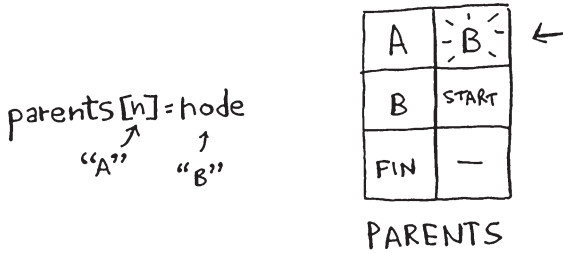 parents[n]=node
"A" "B"
A B
B START
FIN —
PARENTS